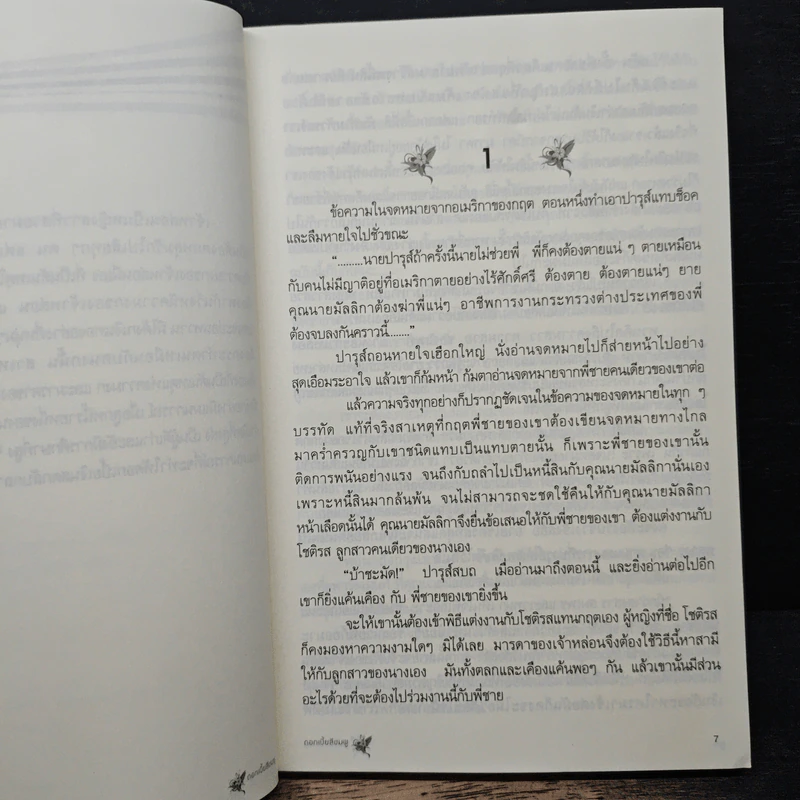 1
ข้อความในจดหมายจากอเมริกาของกฤต ตอนหนึ่งทำเอาปารุส์แทบช็อค
และลืมหายใจไปชั่วขณะ
“.........นายปารุส์ถ้าครั้งนี้นายไม่ช่วยพี่ พี่ก็คงต้องตายแน่ ๆ ตายเหมือน
กับคนไม่มีญาติอยู่ที่อเมริกาตายอย่างไร้ศักดิ์ศรี ต้องตาย ต้องตายแน่ๆ ยาย
คุณนายมัลลิกาต้องฆ่าพี่แน่ๆ อาชีพการงานกระทรวงต่างประเทศของพี่
ต้องจบลงกันคราวนี้........”
ปารุส์ถอนหายใจเฮือกใหญ่ นั่งอ่านจดหมายไปก็ส่ายหน้าไปอย่าง
สุดเอือมระอาใจ แล้วเขาก็ก้มหน้า ก้มตาอ่านจดหมายจากพี่ชายคนเดียวของเขาต่อ
แล้วความจริงทุกอย่างก็ปรากฏชัดเจนในข้อความของจดหมายในทุก ๆ
บรรทัด แท้ที่จริงสาเหตุที่กฤตพี่ชายของเขาต้องเขียนจดหมายทางไกล
มาคร่ำครวญกับเขาชนิดแทบเป็นแทบตายนั้น ก็เพราะพี่ชายของเขานั้น
ติดการพนันอย่างแรง จนถึงกับถลำไปเป็นหนี้สินกับคุณนายมัลลิกานั่นเอง
เพราะหนี้สินมากล้นพ้น จนไม่สามารถจะชดใช้คืนให้กับคุณนายมัลลิกา
หน้าเลือดนั้นได้ คุณนายมัลลิกาจึงยื่นข้อเสนอให้กับพี่ชายของเขา ต้องแต่งงานกับ
โชติรส ลูกสาวคนเดียวของนางเอง
“บ้าชะมัด!” ปารุส์สบถ เมื่ออ่านมาถึงตอนนี้ และยิ่งอ่านต่อไปอีก
เขาก็ยิ่งแค้นเคือง กับ พี่ชายของเขายิ่งขึ้น
จะให้เขานั้นต้องเข้าพิธีแต่งงานกับโชติรสแทนกฤตเอง ผู้หญิงที่ชื่อ โชติรส
ก็คงมองหาความงามใดๆ มิได้เลย มารดาของเจ้าหล่อนจึงต้องใช้วิธีนี้หาสามี
ให้กับลูกสาวของนางเอง มันทั้งตลกและเคืองแค้นพอๆ กัน แล้วเขานั้นมีส่วน
อะไรด้วยที่จะต้องไปร่วมงานนี้กับพี่ชาย
7